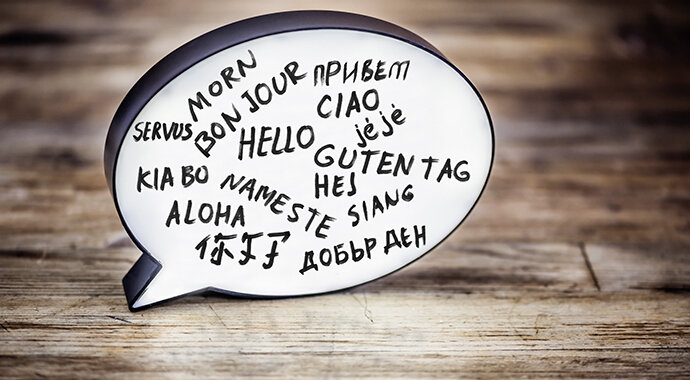 MORN
BONJOUR
ПРИВЕТ
SERVUS
CIAO
HELLO
jėjė
GUTEN TAG
KIA BO
NAMESTE
HEJ
SIANG
ALOHA
ДОБЪР ДЕН